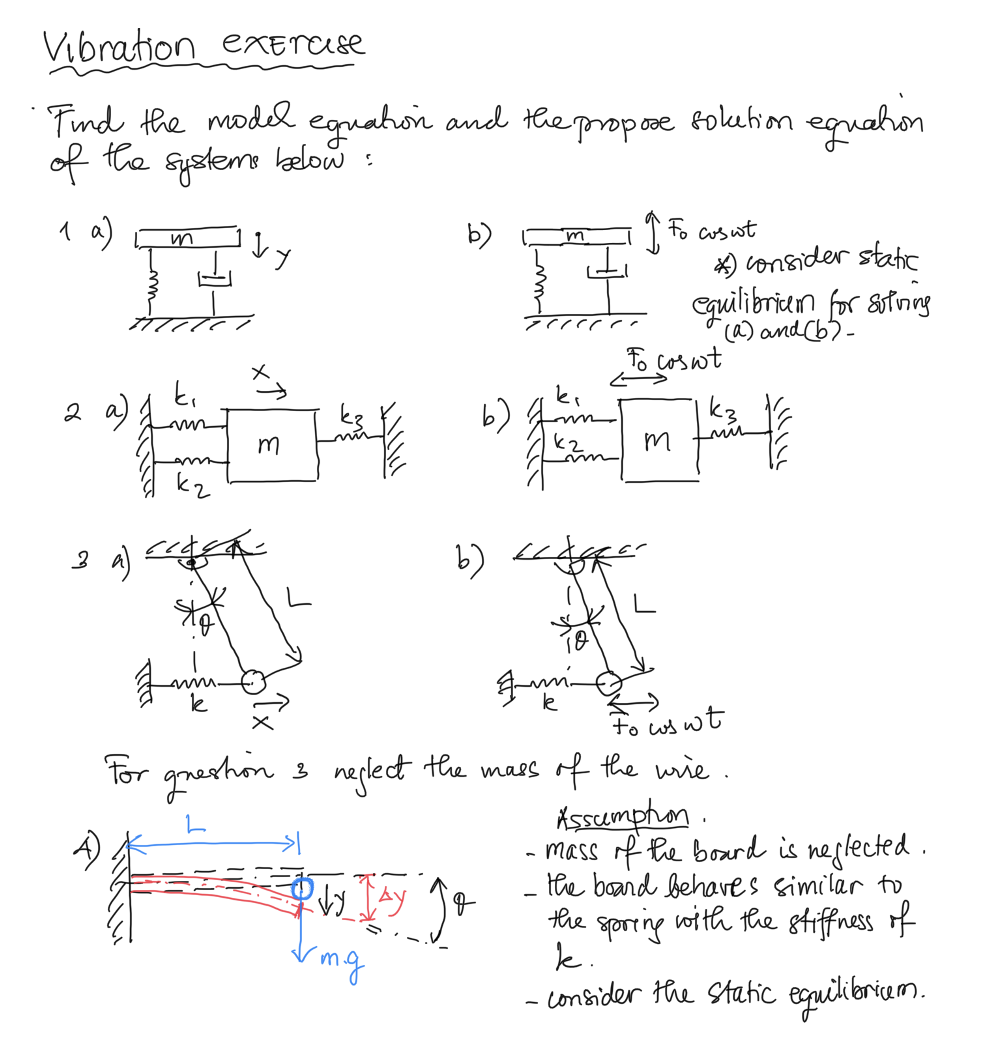 Vibration exercise
Find the model equation and the propose solution equation
of the systems below :
1 a)
m
y
b)
m
F₀ cos ωt
*) consider static
equilibrium for solving
(a) and (b)-
2 a)
k₁
k₂
x
m
k₃
b)
k₁
k₂
F₀ cos ωt
m
k₃
3 a)
θ
L
k
x
b)
θ
L
k
F₀ cos ωt
For question 3 neglect the mass of the wire.
4)
L
y
Δy
θ
m.g
Assumption.
- mass of the board is neglected.
- the board behaves similar to
the spring with the stiffness of
k.
- consider the static equilibrium.